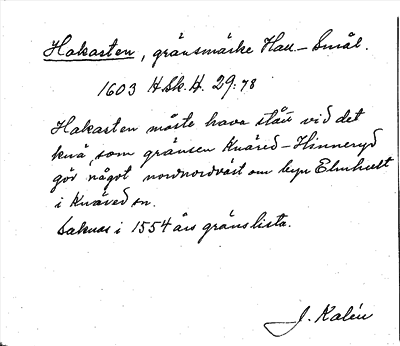 Hakasten, gränsmärke Hall–Smål.
1603 H.Sk.H. 29:78
Hakasten måste hava stått vid det
knä, som gränsen Knäred–Hinneryd
gör något nordnordväst om byn Elmhult
i Knäred sn.
Saknas i 1554 års gränslista.
J. Kalén